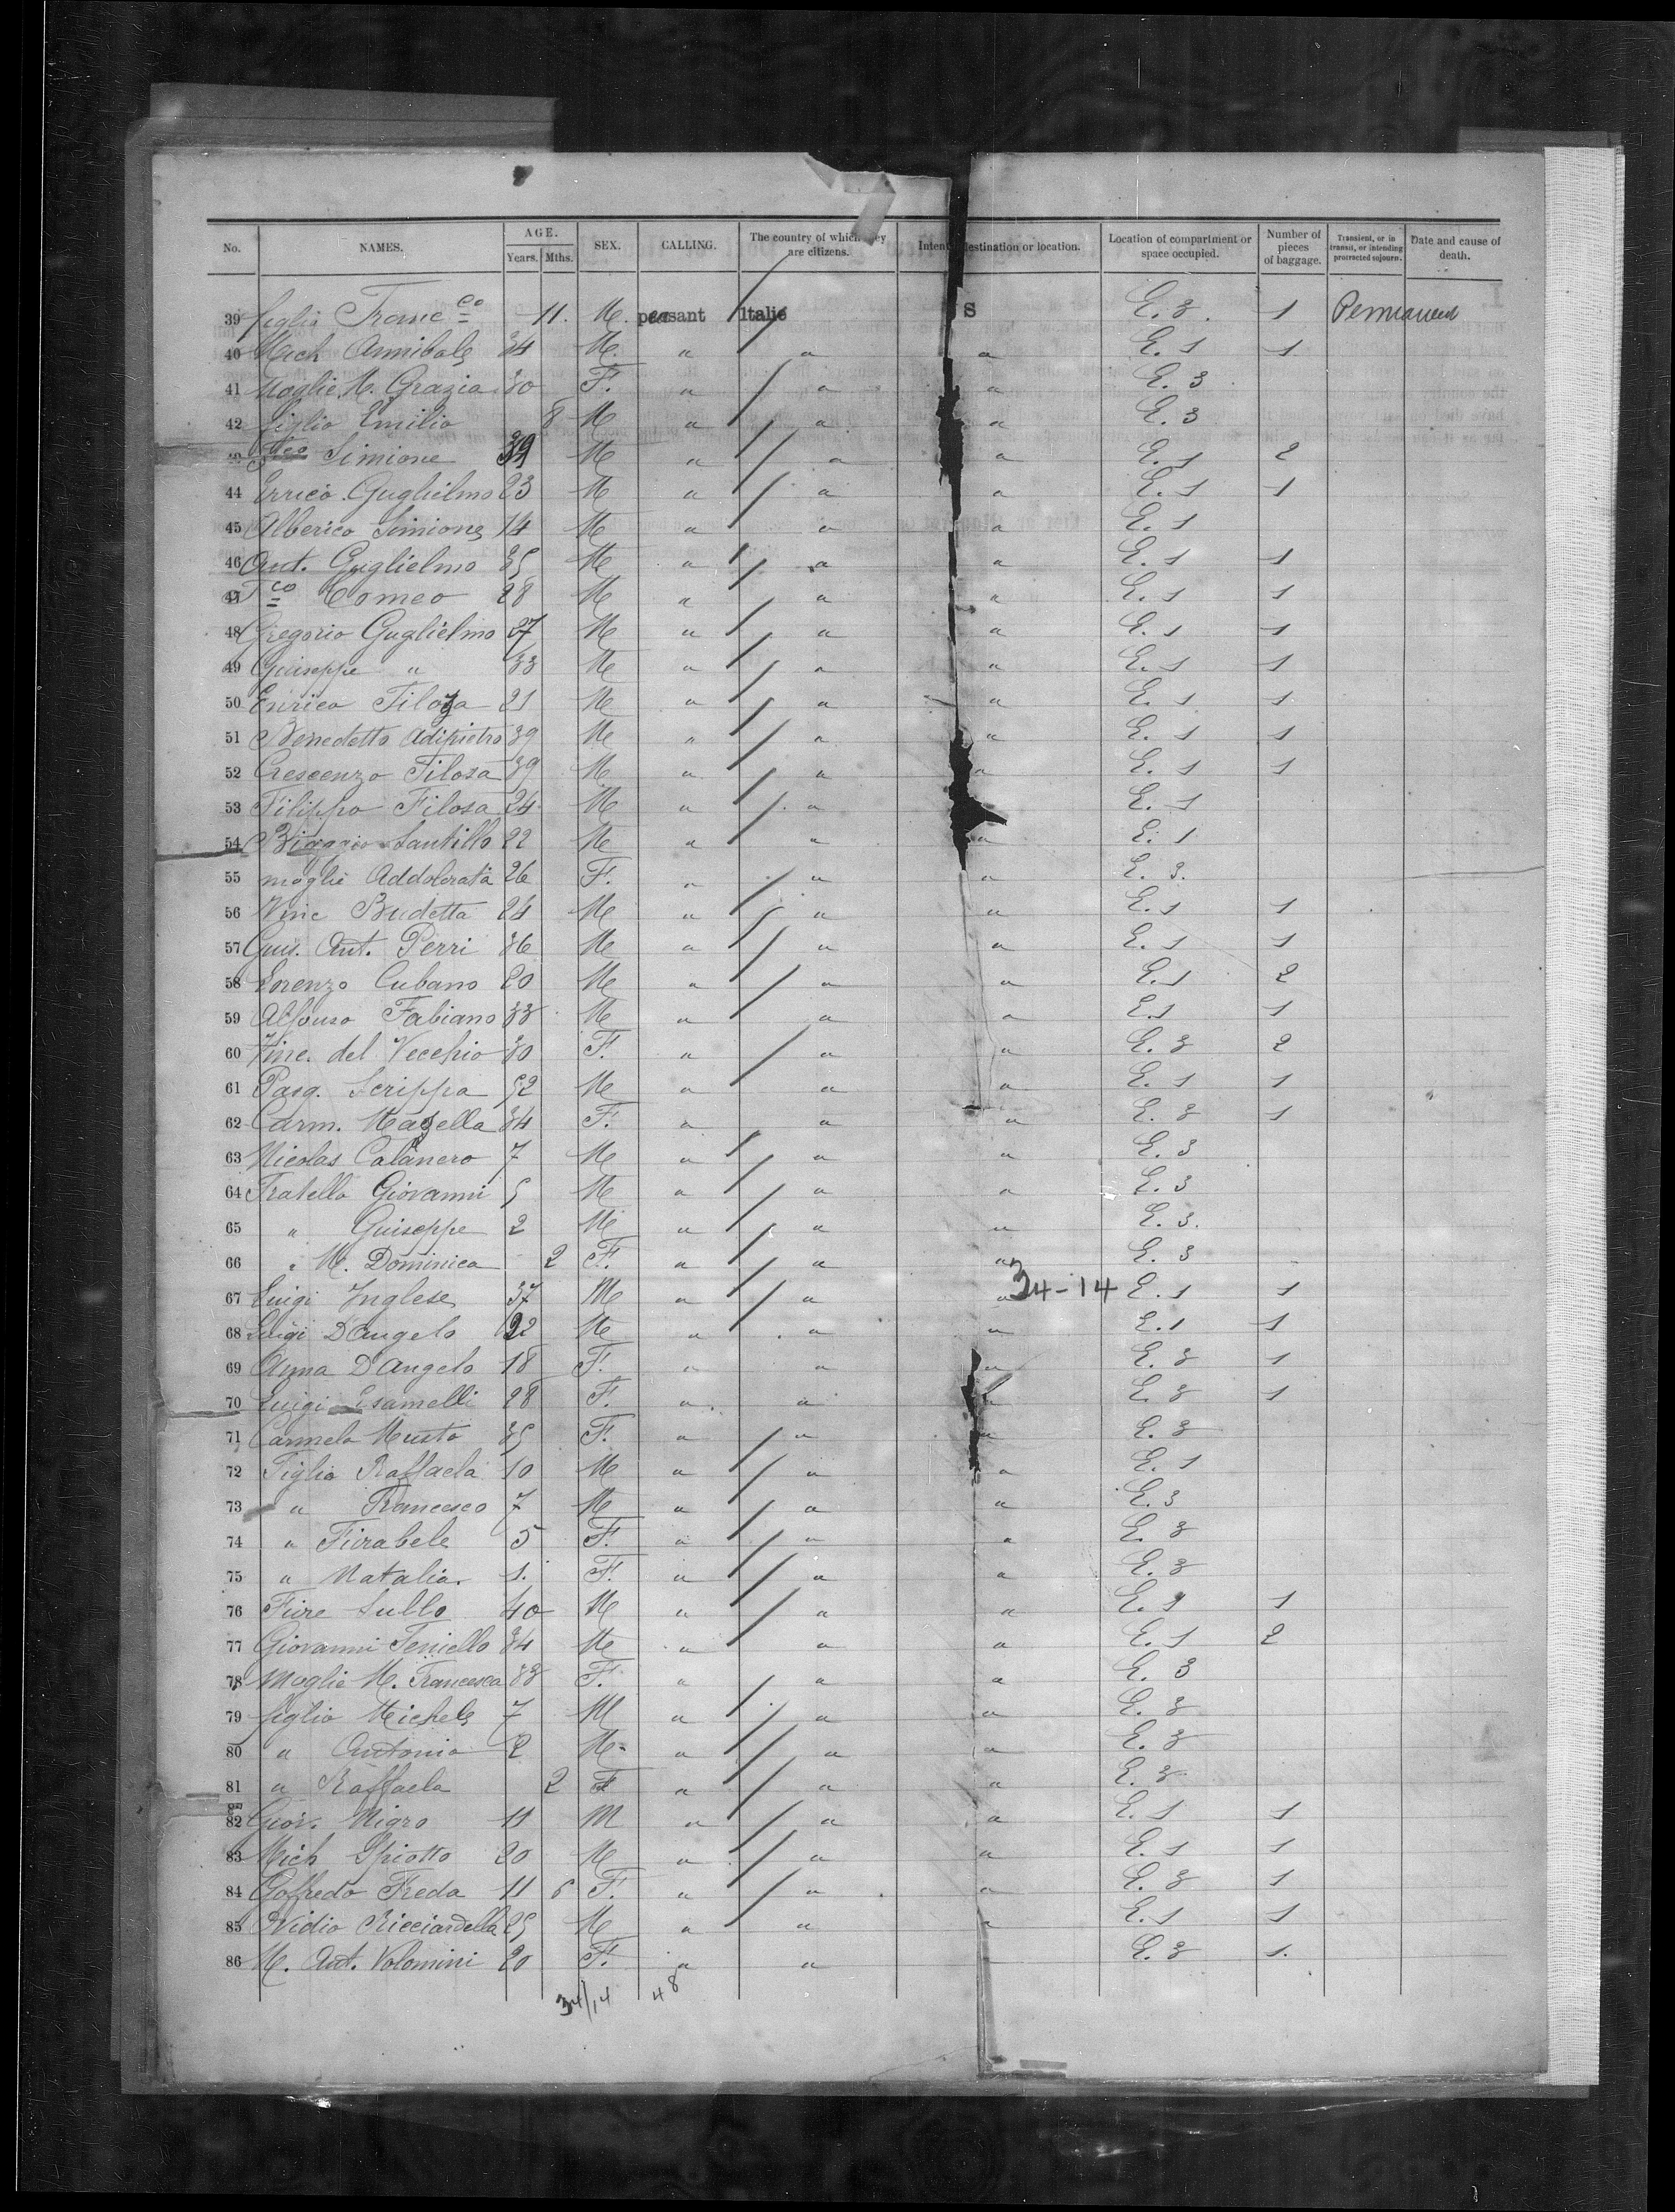 No. NAMES. AGE. Years. Mths. SEX. CALLING. The country of which ey are citizens. Inten estination or location. Location of compartment or space occupied. Number of pieces of baggage. Transient, or in transit, or intending protracted sojourn. Date and cause of death.
39 figlio Franc co 11. M. peasant Italie S E. 3. 1 Permanent
40 Mich Annibale 34 M. " " " E. 1 1
41 Moglie M. Grazia 30 F. " " " E. 3
42 figlio Emilio 8 M " " " E. 3
Simione 39 M " " " E. 1 2
44 Errico Guglielmo 23 M " " " E. 1 1
45 Alberico Simione 14 M " " " E. 1
46 Ant. Guglielmo 35 M " " " E. 1 1
47 F co Comeo 28 M " " " E. 1 1
48 Gregorio Guglielmo 27 M " " " E. 1 1
49 Guiseppe " 33 M " " " E. 1 1
50 Enrico Filoza 21 M " " " E. 1 1
51 Benedetto Adipietro 39 M " " " E. 1 1
52 Crescenzo Filosa 39 M " " " E. 1 1
53 Filippo Filosa 24 M " " " E. 1
54 Biaggio Santillo 22 M " " " E. 1
55 moglie Addolorata 26 F. " " " E. 3.
56 Vinc Budetta 24 M " " " E. 1 1
57 Guis. Ant. Perri 36 M " " " E. 1 1
58 Lorenzo Cubano 20 M " " " E. 1 2
59 Alfonso Fabiano 33 M " " " E. 1 1
60 Vinc. del Vecchio 30 F. " " " E. 3 2
61 Pasq. Scrippa 52 M " " " E. 1 1
62 Carm. Mazella 34 F. " " " E. 3 1
63 Nicolas Calanero 7 M " " " E. 3
64 Fratello Giovanni 5 M " " " E. 3
65 " Guiseppe 2 M " " " E. 3.
66 " M. Dominica 2 F. " " " E. 3
67 Luigi Inglese 37 M " " " 34-14 E. 1 1
68 Luigi D'Angelo 22 M " " " E. 1 1
69 Anna D'Angelo 18 F. " " " E. 3 1
70 Luigi Esamelli 28 F. " " " E. 3 1
71 Carmela Musto 35 F. " " " E. 3
72 Figlio Raffaela 10 M " " " E. 1
73 " Francesco 7 M " " " E. 3
74 " Fiorabele 5 F. " " " E. 3
75 " Natalia. 1. F. " " " E. 3
76 Fiore Sullo 40 M " " " E. 1 1
77 Giovanni Teniello 34 M " " " E. 1 2
78 Moglie M. Francesca 33 F. " " " E. 3
79 figlio Michele 7 M " " " E. 3
80 " Antonio 2 M " " " E. 3
81 " Raffaela 2 F " " " E. 3
82 Giov. Nigro 11 M " " " E. 1 1
83 Mich Spiotto 20 M " " " E. 1 1
84 Goffredo Freda 11 6 F. " " " E. 3 1
85 Ovidio Ricciardella 25 M " " " E. 1 1
86 M. Ant. Volomini 20 F. " " E. 3 1.
34/14 48